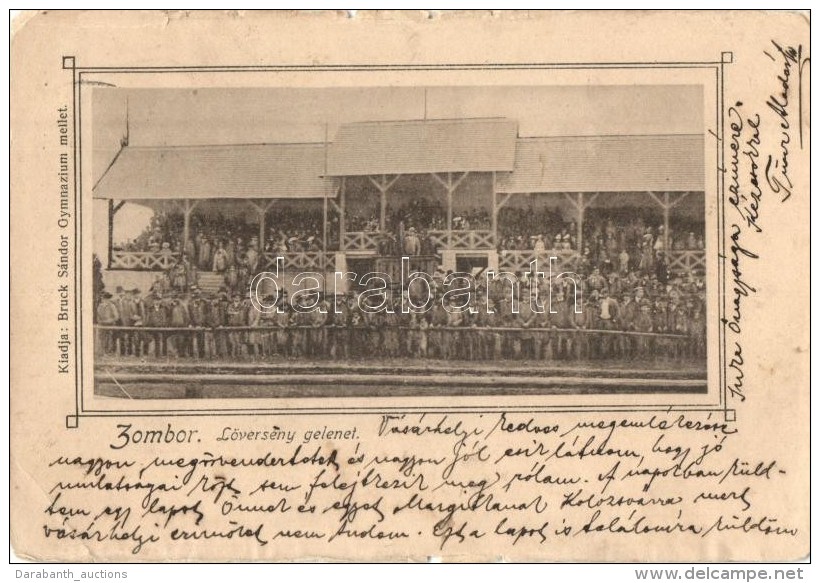 Kiadja: Bruck Sándor Gymnazium mellet.
darabanth
Zombor. Lövérsény gelenet.
Vásárhelyi kedves megemlékezése
nagyon megörvendeztetet és nagyon jól esik látnom, hogy jó
mulatságai közt sem felejtkezik meg rólam. A napokban küld-
tem egy lapot Önnek és egyet Margitkának Kolozsvárra mert
vásárhelyi czimöket nem tudom. Ezt a lapot is találomra küldöm
Imre Önagysága
kezeit
Darabanth_auctions
www.delcampe.net